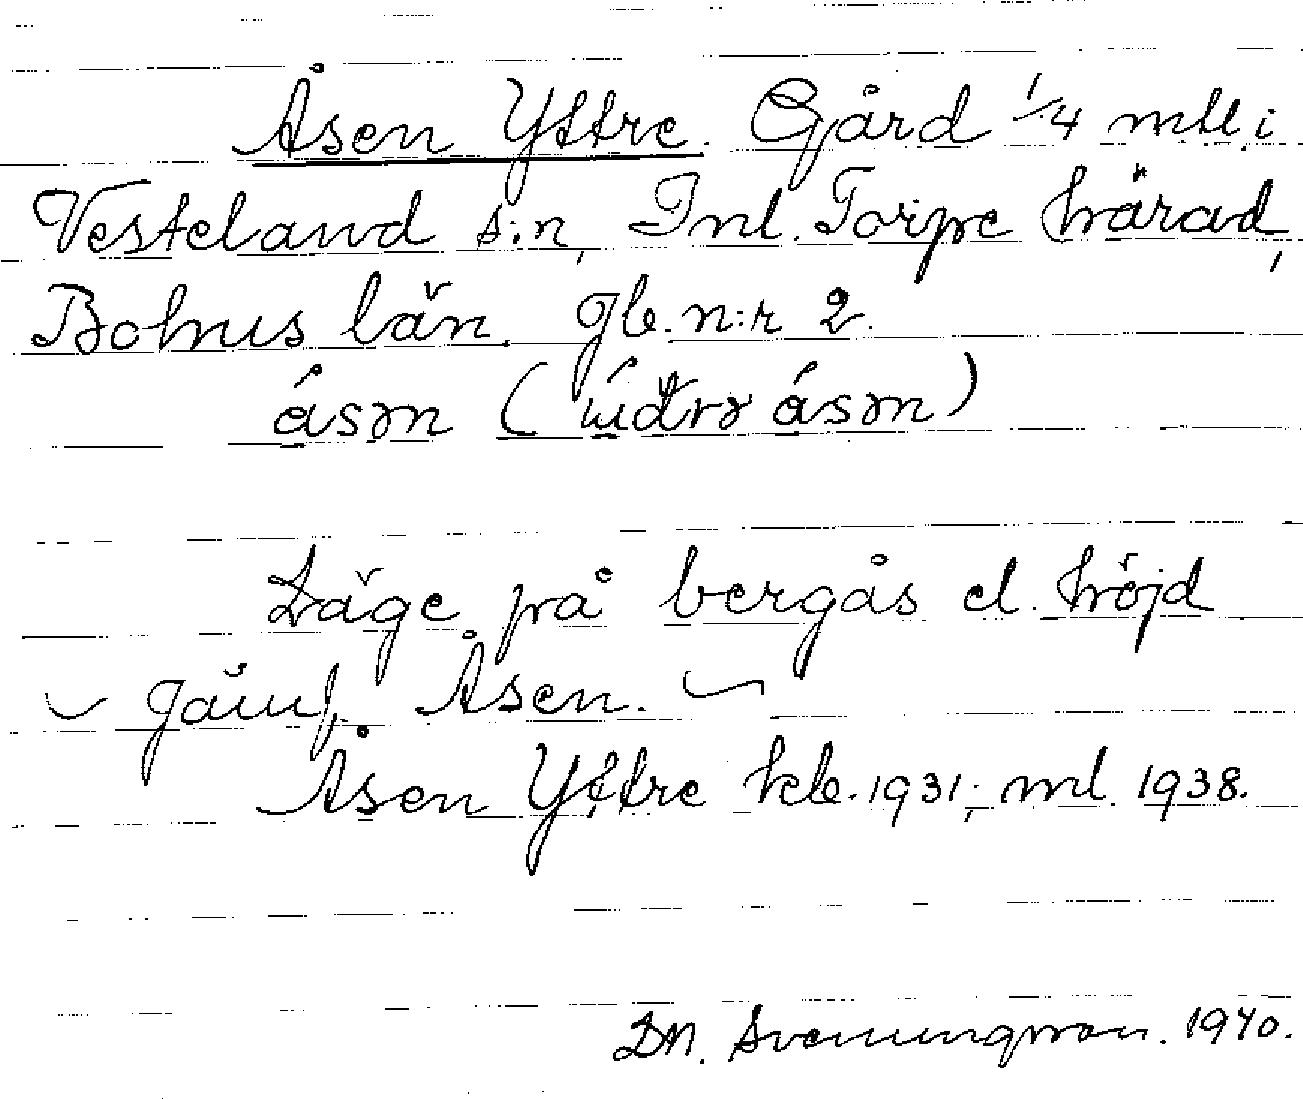 Åsen Yttre. Gård 1/4 mtl. i
Vesteland s:n, Inl. Torpe härad,
Bohus län. gb. n:r 2.
åsən (åsən)
Läge på bergås el. höjd
jämf. Åsen.
Åsen Yttre kb. 1931; ml. 1938.
DN. Svenungsson. 1940.